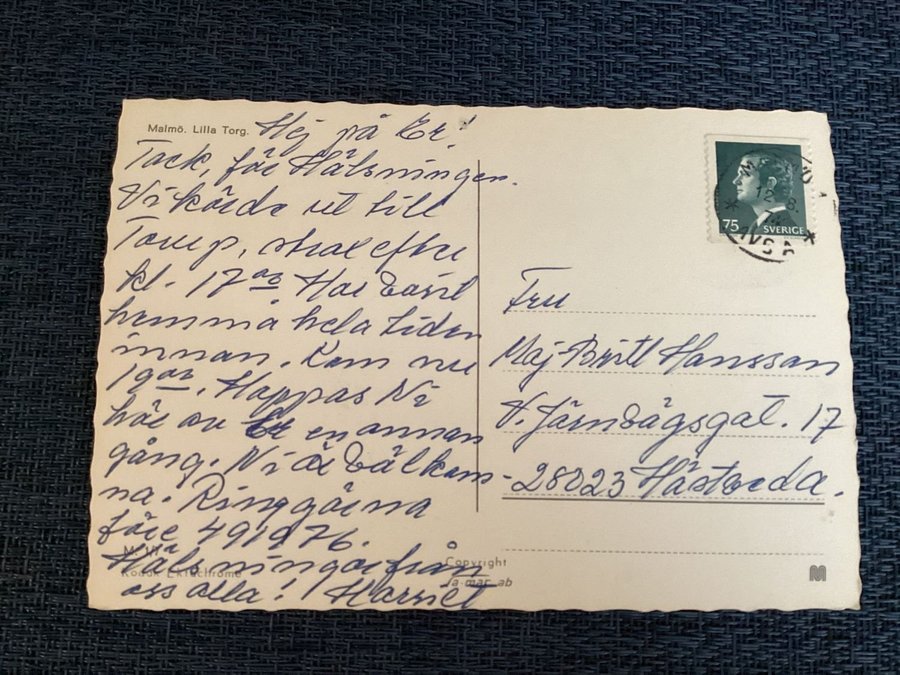 Malmö. Lilla Torg.
Hej på Er!
Tack, för Hälsningen.
Vi körde ut till
Torup, strax efter
kl. 17 00 Har varit
hemma hela tiden
innan. Kom nu
19 00. Hoppas Ni
hör av Er en annan
gång. Ni är välkom-
na. Ring gärna
före 491976.
Hälsningar från
oss alla! Harriet
Kodak Ektachrome
Copyright
la-mar ab
M
75 SVERIGE
Fru
Maj-Britt Hansson
V. Järnvägsgat. 17
28023 Hästveda.